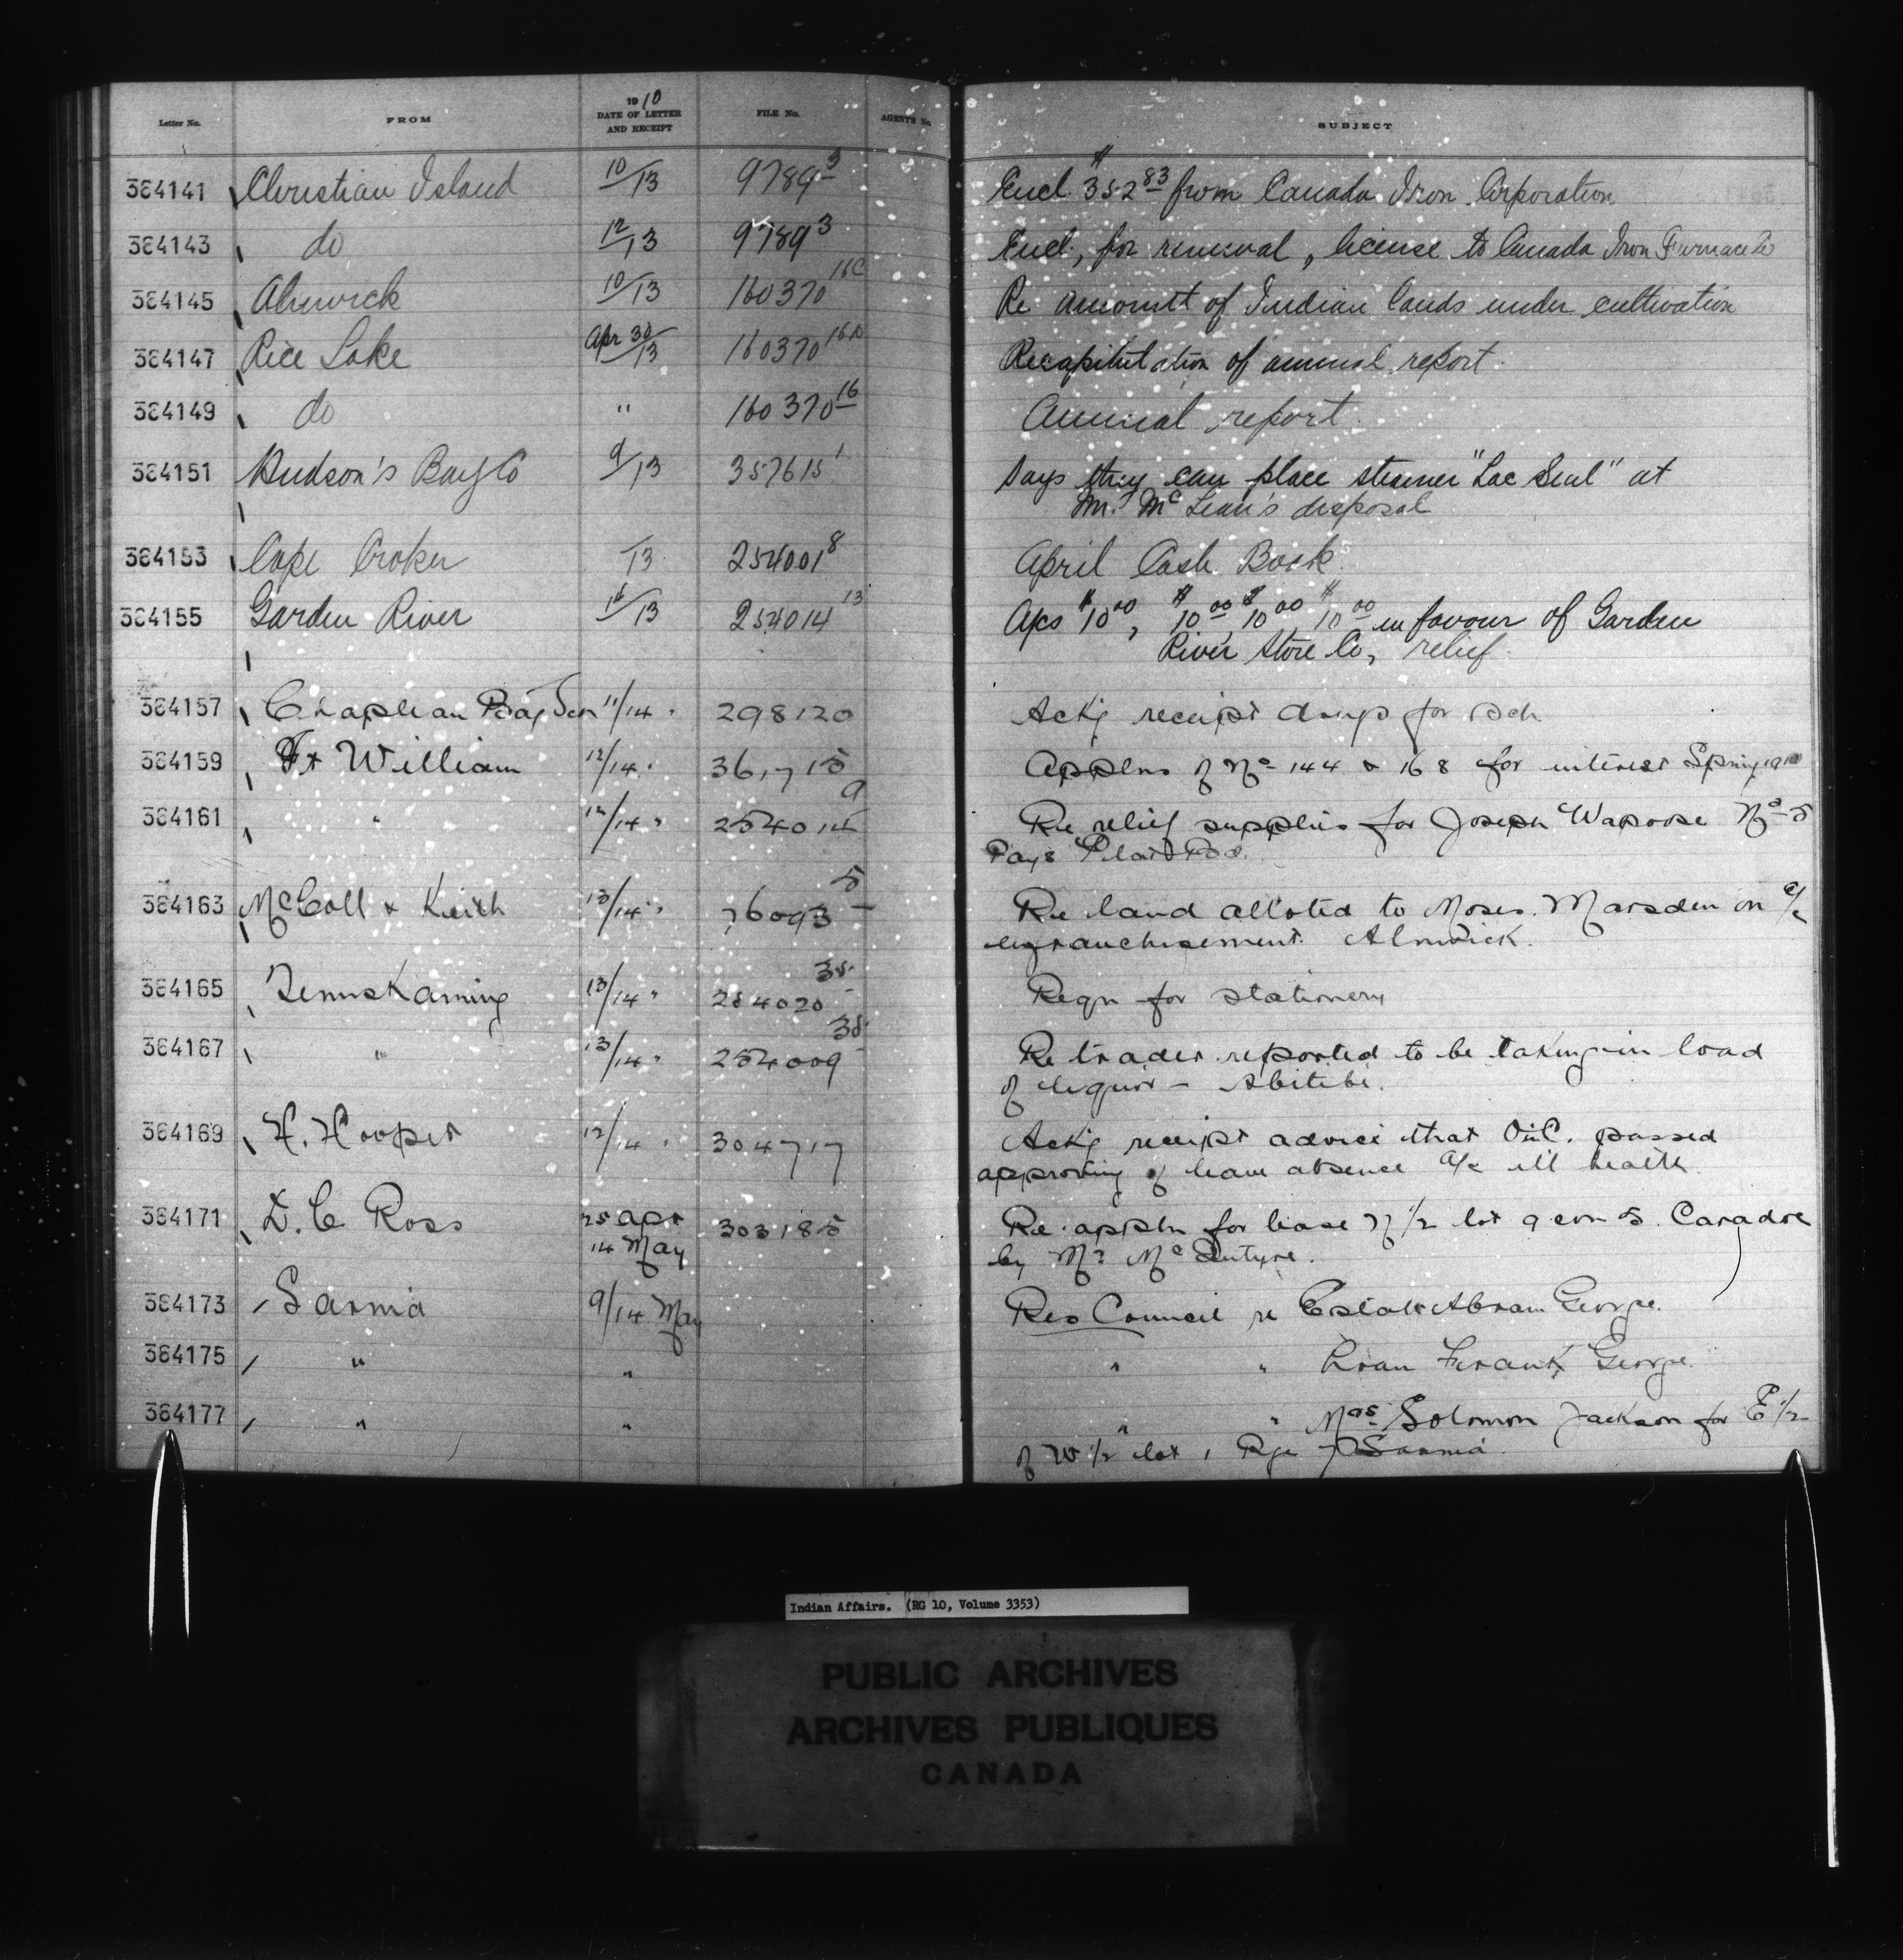 Letter No. FROM 1910 DATE OF LETTER AND RECEIPT FILE No. AGENTS No. SUBJECT
384141 Christian Island 10/13 9789 3 Encl. $352 83 from Canada Iron Corporation
384143 do 12/13 9789 3 Encl., for renewal, license to Canada Iron Furnace Co
384145 Alnwick 10/13 160370 16C Re amountt of Indian lands under cultivation
384147 Rice Lake Apr 30/13 160370 Recapitulation of annual report
384149 do " 160370 16 Annual report
384151 Hudson's Bay Co 9/13 357615 1 Says they can place steamer "Lac Seul" at
Mr. McLean's disposal
384153 Cape Croker 13 254001 8 April Cash Book
384155 Garden River /13 254014 13 A/cs $10 00, $10 00 $10 00, $10 00 in favour of Garden
River Store Co, relief
384157 Chapleau 11/14 " 298120 Ackg receipt drugs for sch
384159 Ft William 12/14 " 361,715 Applns of No 144 & 168 for interest Spring 1910
384161 " 12/14 " 254014 9 Re relief supplies for Joseph Wapoose No 5
Pays Plat
384163 McColl & Keith 13/14 " 76093 5 Re land alloted to Moses Marsden on a/c
enfranchisement. Alnwick.
384165 Temiskaming 13/14 " 254020 Reqn for stationery
384167 " 13/14 " 254009 Re trader reported to be taking in load
of liquor - Abitibi.
384169 H. Hooper 12/14 " 304717 Ackg receipt advice that OinC. passed
approving of leave absence a/c ill health
384171 D. C Ross 25 Apr 303185 Re appln for lease N 1/2 lot 9 con 5. Caradoc
14 May by Mr McIntyre.
384173 Sarnia 9/14 May Res Council re Estate Abram George.
384175 " " " " Loan Frank George.
384177 " " " " Mrs Solomon Jackson for E 1/2
of W 1/2 lot 1 Rge 7 Sarnia
Indian Affairs. (RG 10, Volume 3353)
PUBLIC ARCHIVES
ARCHIVES PUBLIQUES
CANADA